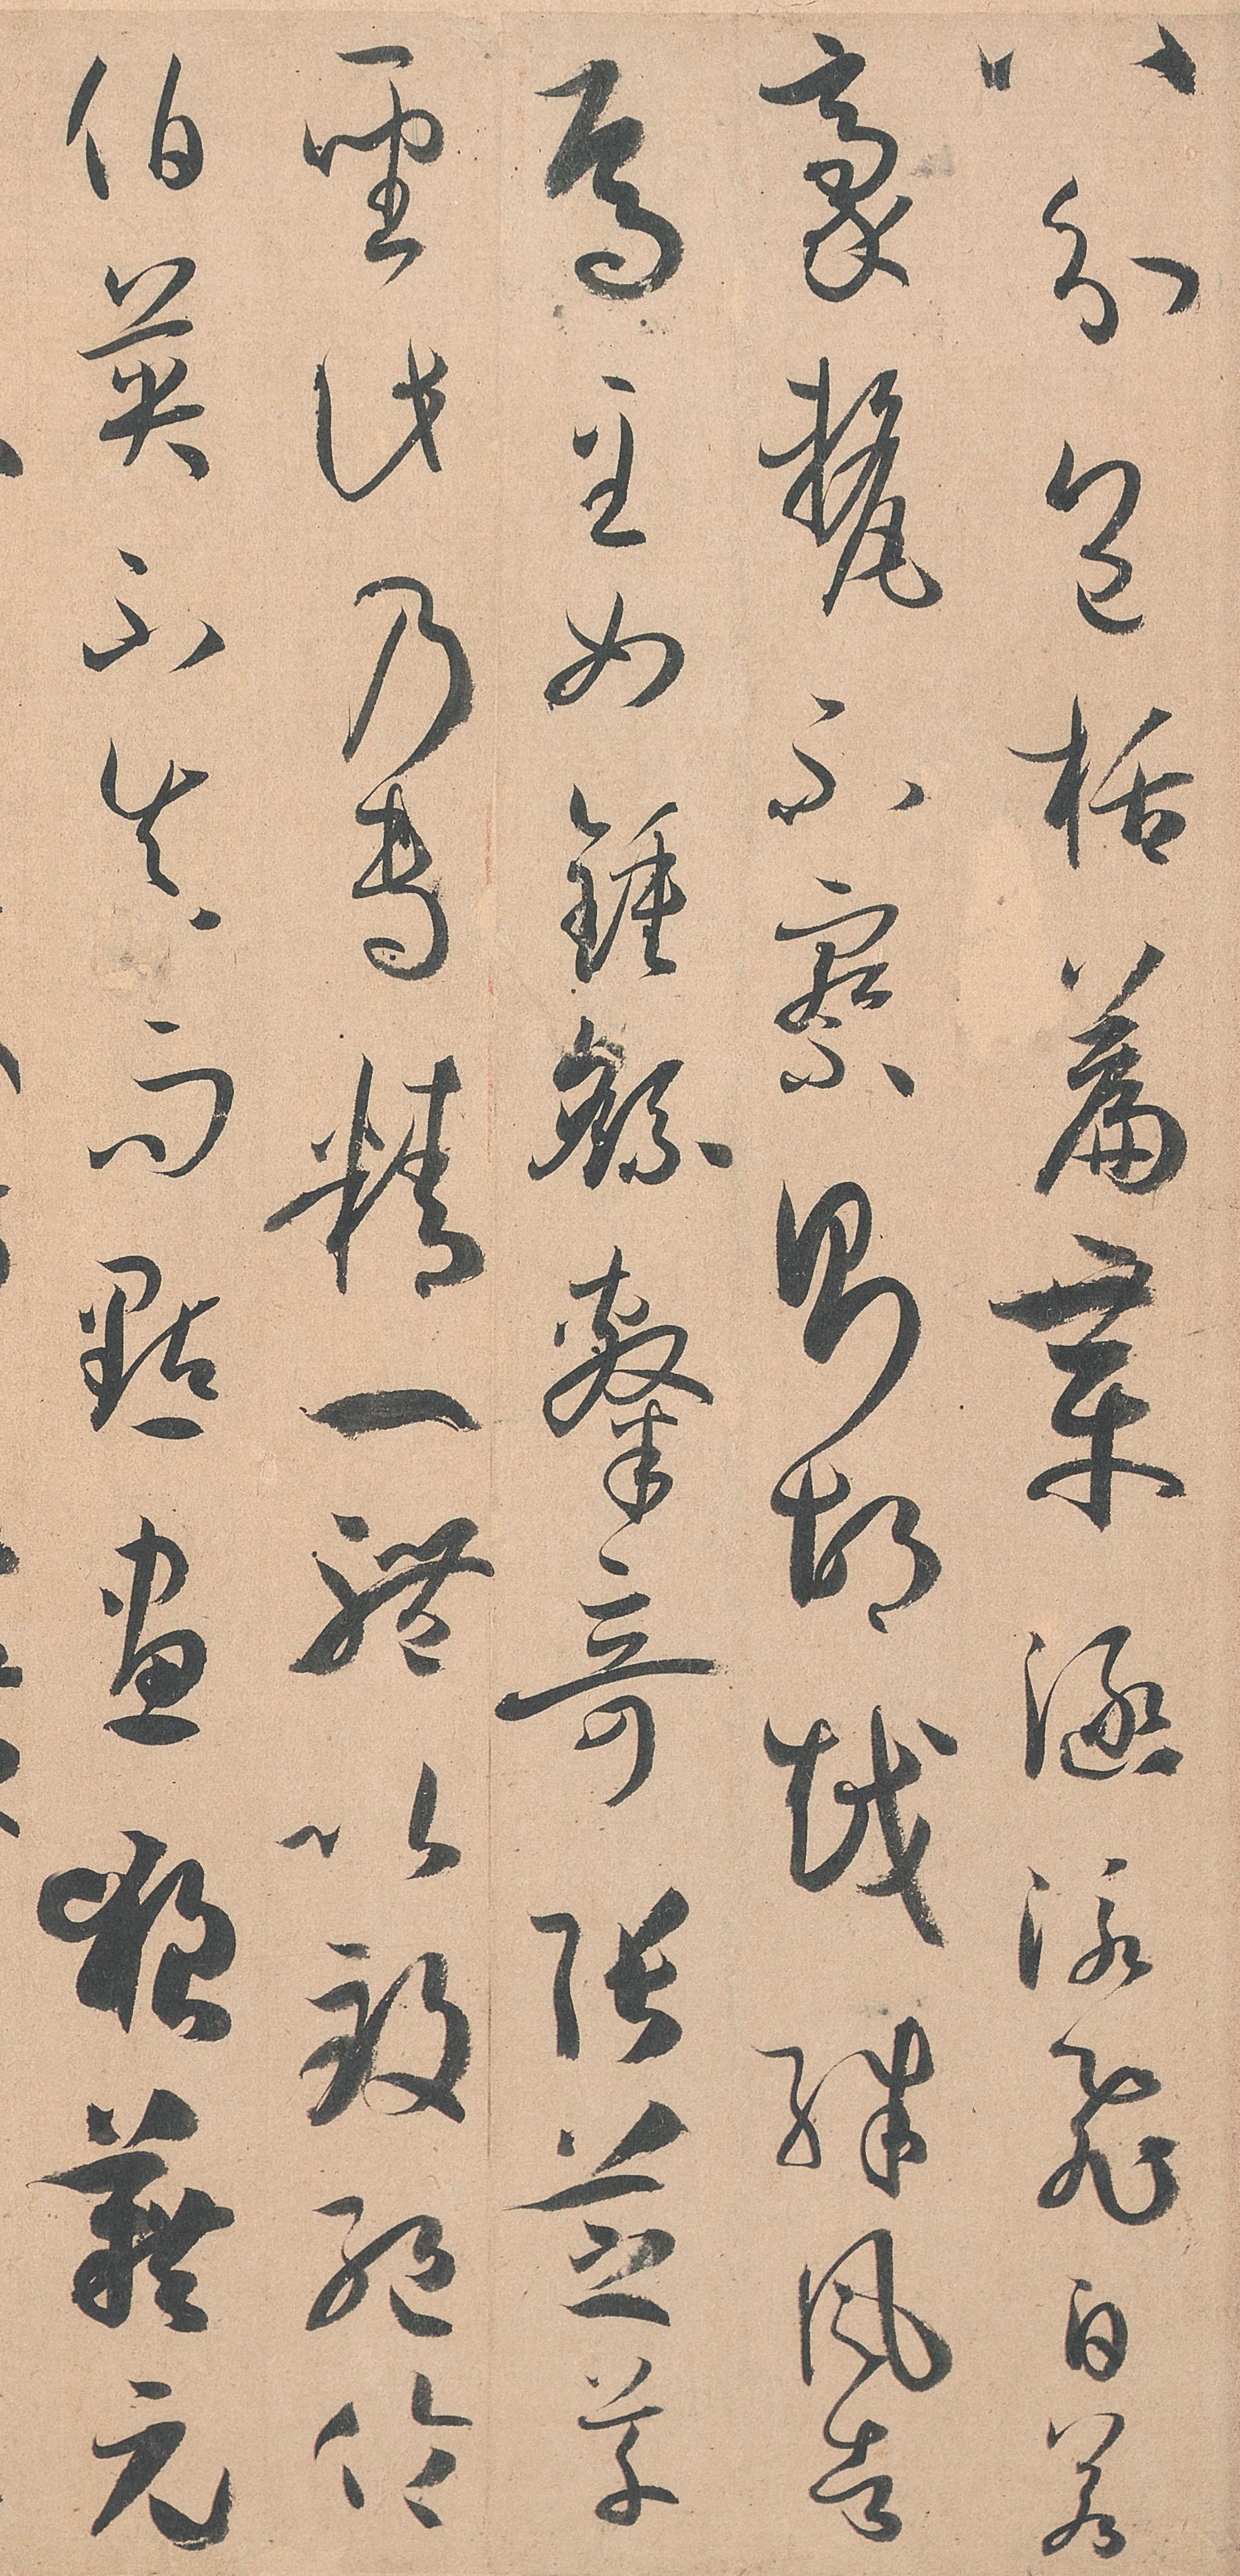 八分包括篇章涵泳飛白若
豪氂不察則胡越殊風者
焉至如鍾繇隸奇張芝草
聖此乃專精一體以致絕倫
伯英不真而點畫狼藉元